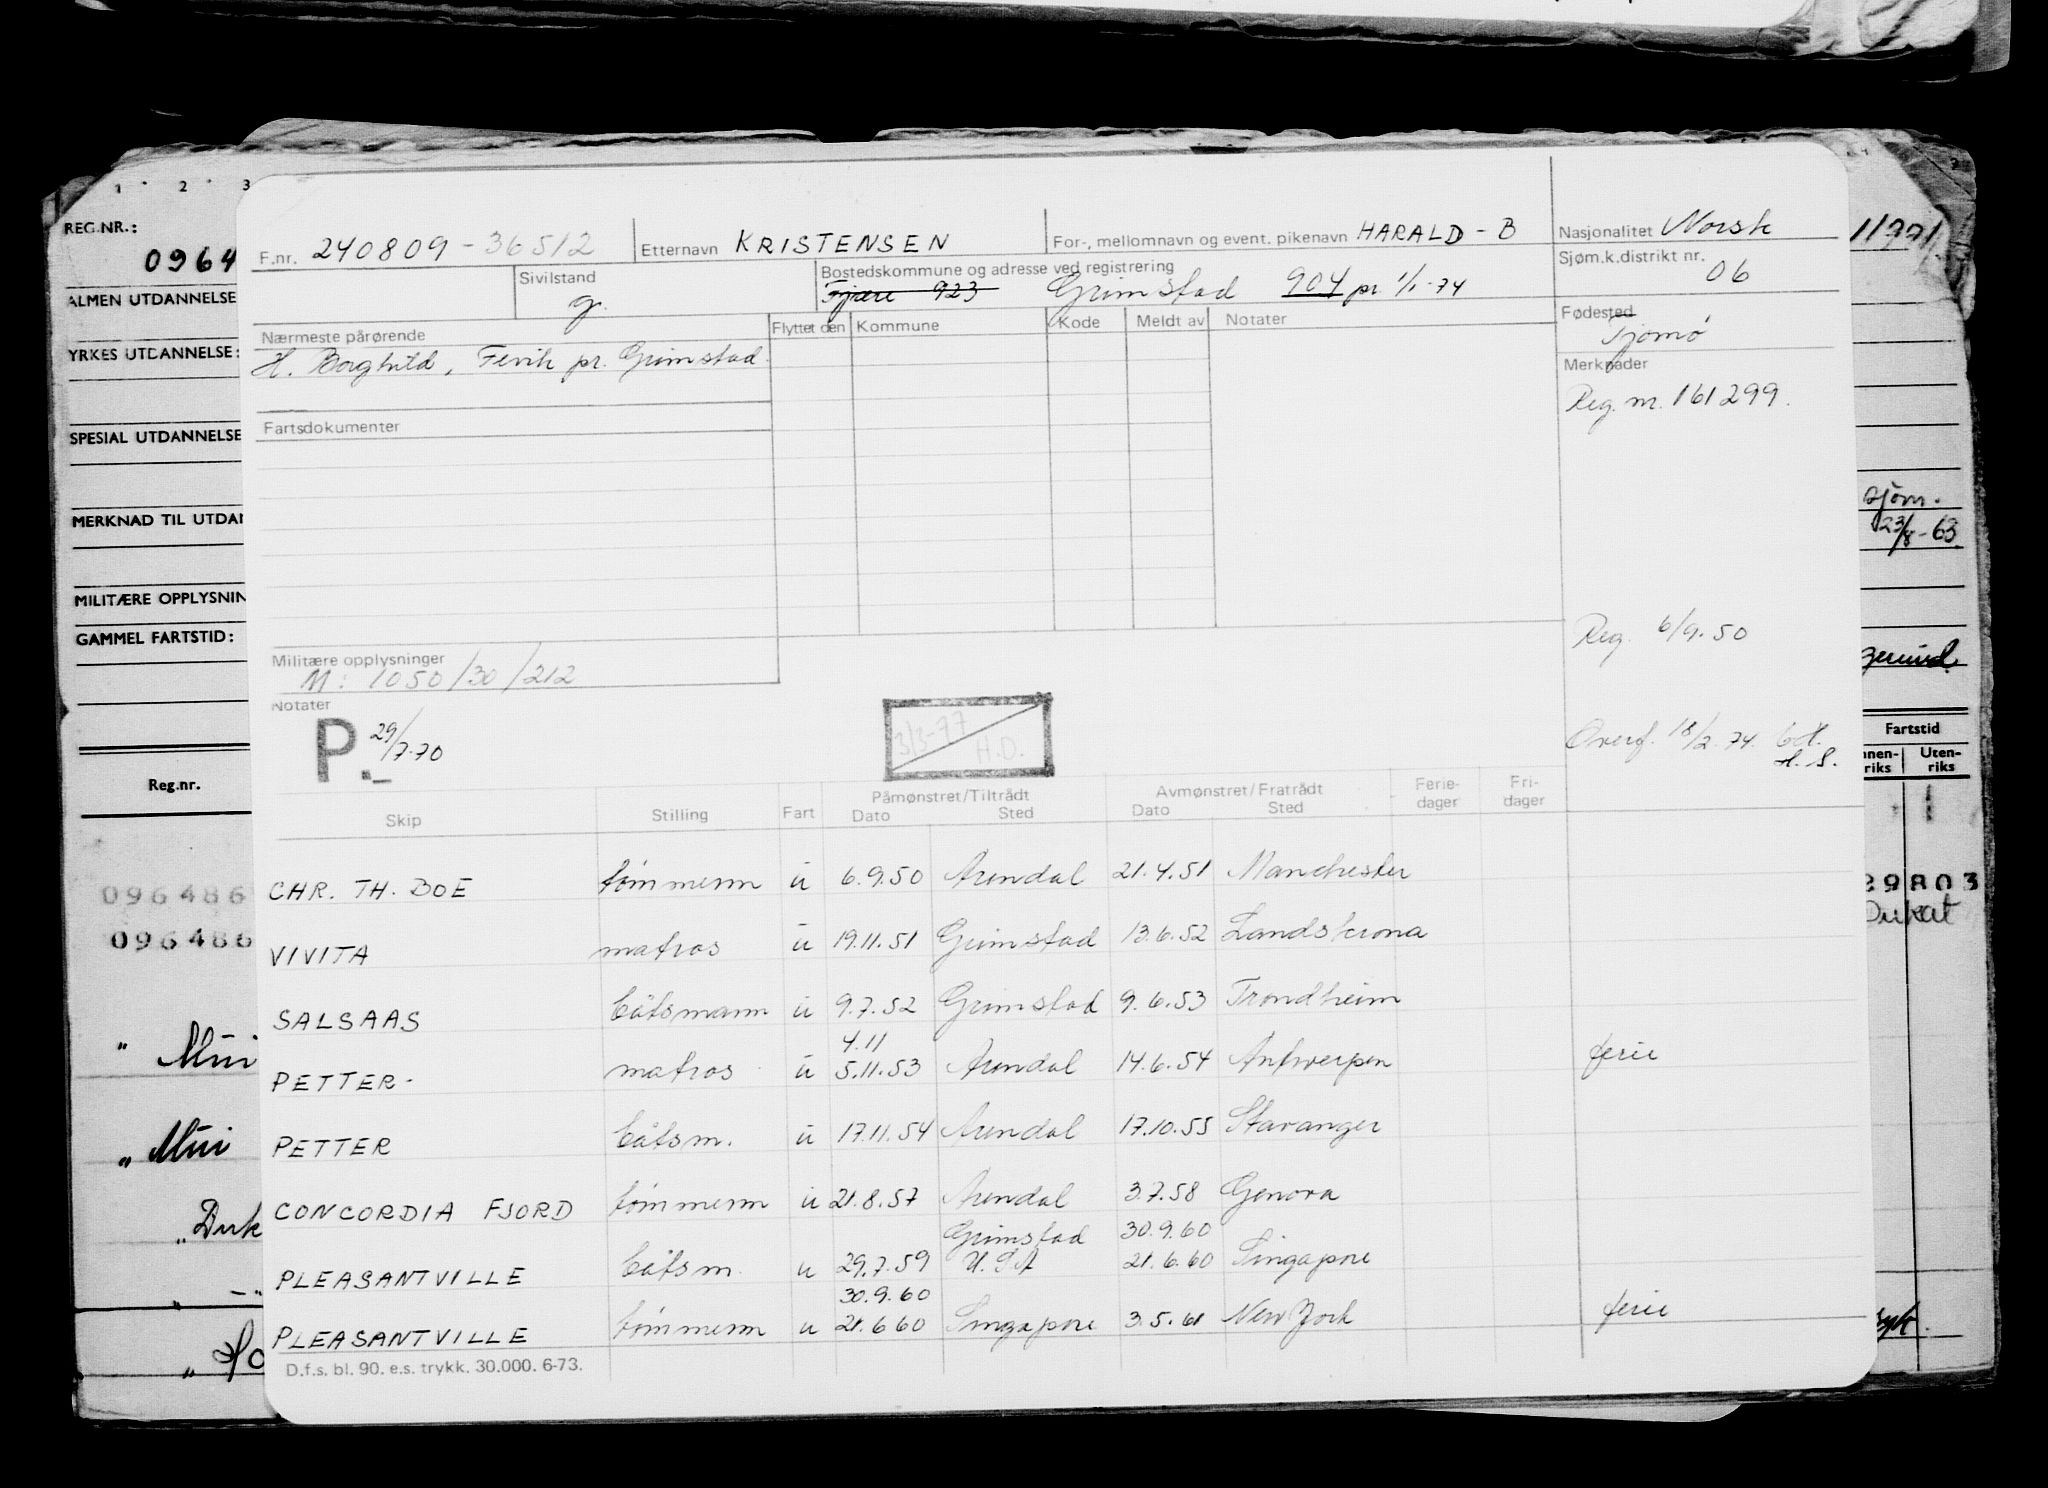 1 2 3
REG.NR.:
0964
ALMEN UTDANNELSE
YRKES UTDANNELSE:
SPESIAL UTDANNELSE
MERKNAD TIL UTDAN
MILITÆRE OPPLYSNIN
GAMMEL FARTSTID:
Reg.nr.
096486
096486
" Mui
„ Mui
„
F.nr. 240809-36512 Etternavn KRISTENSEN For-, mellomnavn og event. pikenavn HARALD - B Nasjonalitet Norsk
Sivilstand g. Bostedskommune og adresse ved registrering Sjøm.k.distrikt nr. 06
Fjære 923 Grimstad 904 pr. 1/1-74
Nærmeste pårørende Flyttet den Kommune Kode Meldt av Notater Fødested
H. Borghild, Fevik pr. Grimstad. Tjømø
Merknader
Reg. nr. 161299.
Fartsdokumenter
sjøm.
23/8-63
Reg. 6/9.50
Militære opplysninger
M: 1050/30/212
Notater
P. 29/7.70
3/3-77 H.D.
Overf. 18/2.74.
Fartstid
Innen-riks Uten-riks
Skip Stilling Fart Påmønstret/Tiltrådt Avmønstret/Fratrådt Ferie-dager Fri-dager
Dato Sted Dato Sted
CHR. TH. BOE tømmerm ū 6.9.50 Arendal 21.4.51 Manchester
VIVITA matros ū 19.11.51 Grimstad 13.6.52 Landskrona
SALSAAS båtsmann ū 9.7.52 Grimstad 9.6.53 Trondheim
4.11
PETTER- matros ū 5.11.53 Arendal 14.6.54 Antwerpen ferie
PETTER båtsm. ū 17.11.54 Arendal 17.10.55 Stavanger
CONCORDIA FJORD tømmerm ū 21.8.57 Arendal 3.7.58 Genova
Grimstad 30.9.60
PLEASANTVILLE båtsm. u 29.7.59 U.S.A 21.6.60 Singapore
30.9.60
PLEASANTVILLE tømmerm u 21.6.60 Singapore 3.5.61 New York ferie
D.f.s. bl. 90. e.s. trykk. 30.000. 6-73.
29803
Dukat